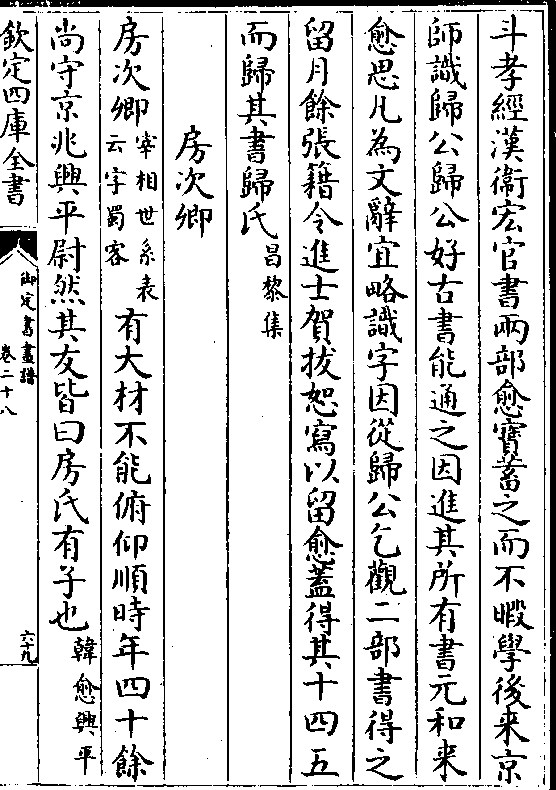 斗孝經漢衛宏官書兩部愈寳蓄之而不暇學後来京
師識歸公歸公好古書能通之因進其所有書元和来
愈思凡為文辭宜略識字因從歸公乞觀二部書得之
留月餘張籍令進士賀拔恕寫以留愈蓋得其十四五
而歸其書歸氏昌黎集
房次卿
房次卿宰相世系表云字蜀客有大材不能俯仰順時年四十餘
尚守京兆興平尉然其友皆曰房氏有子也韓愈興平
欽定四庫全書
御定書畫譜
卷二十八
六十九